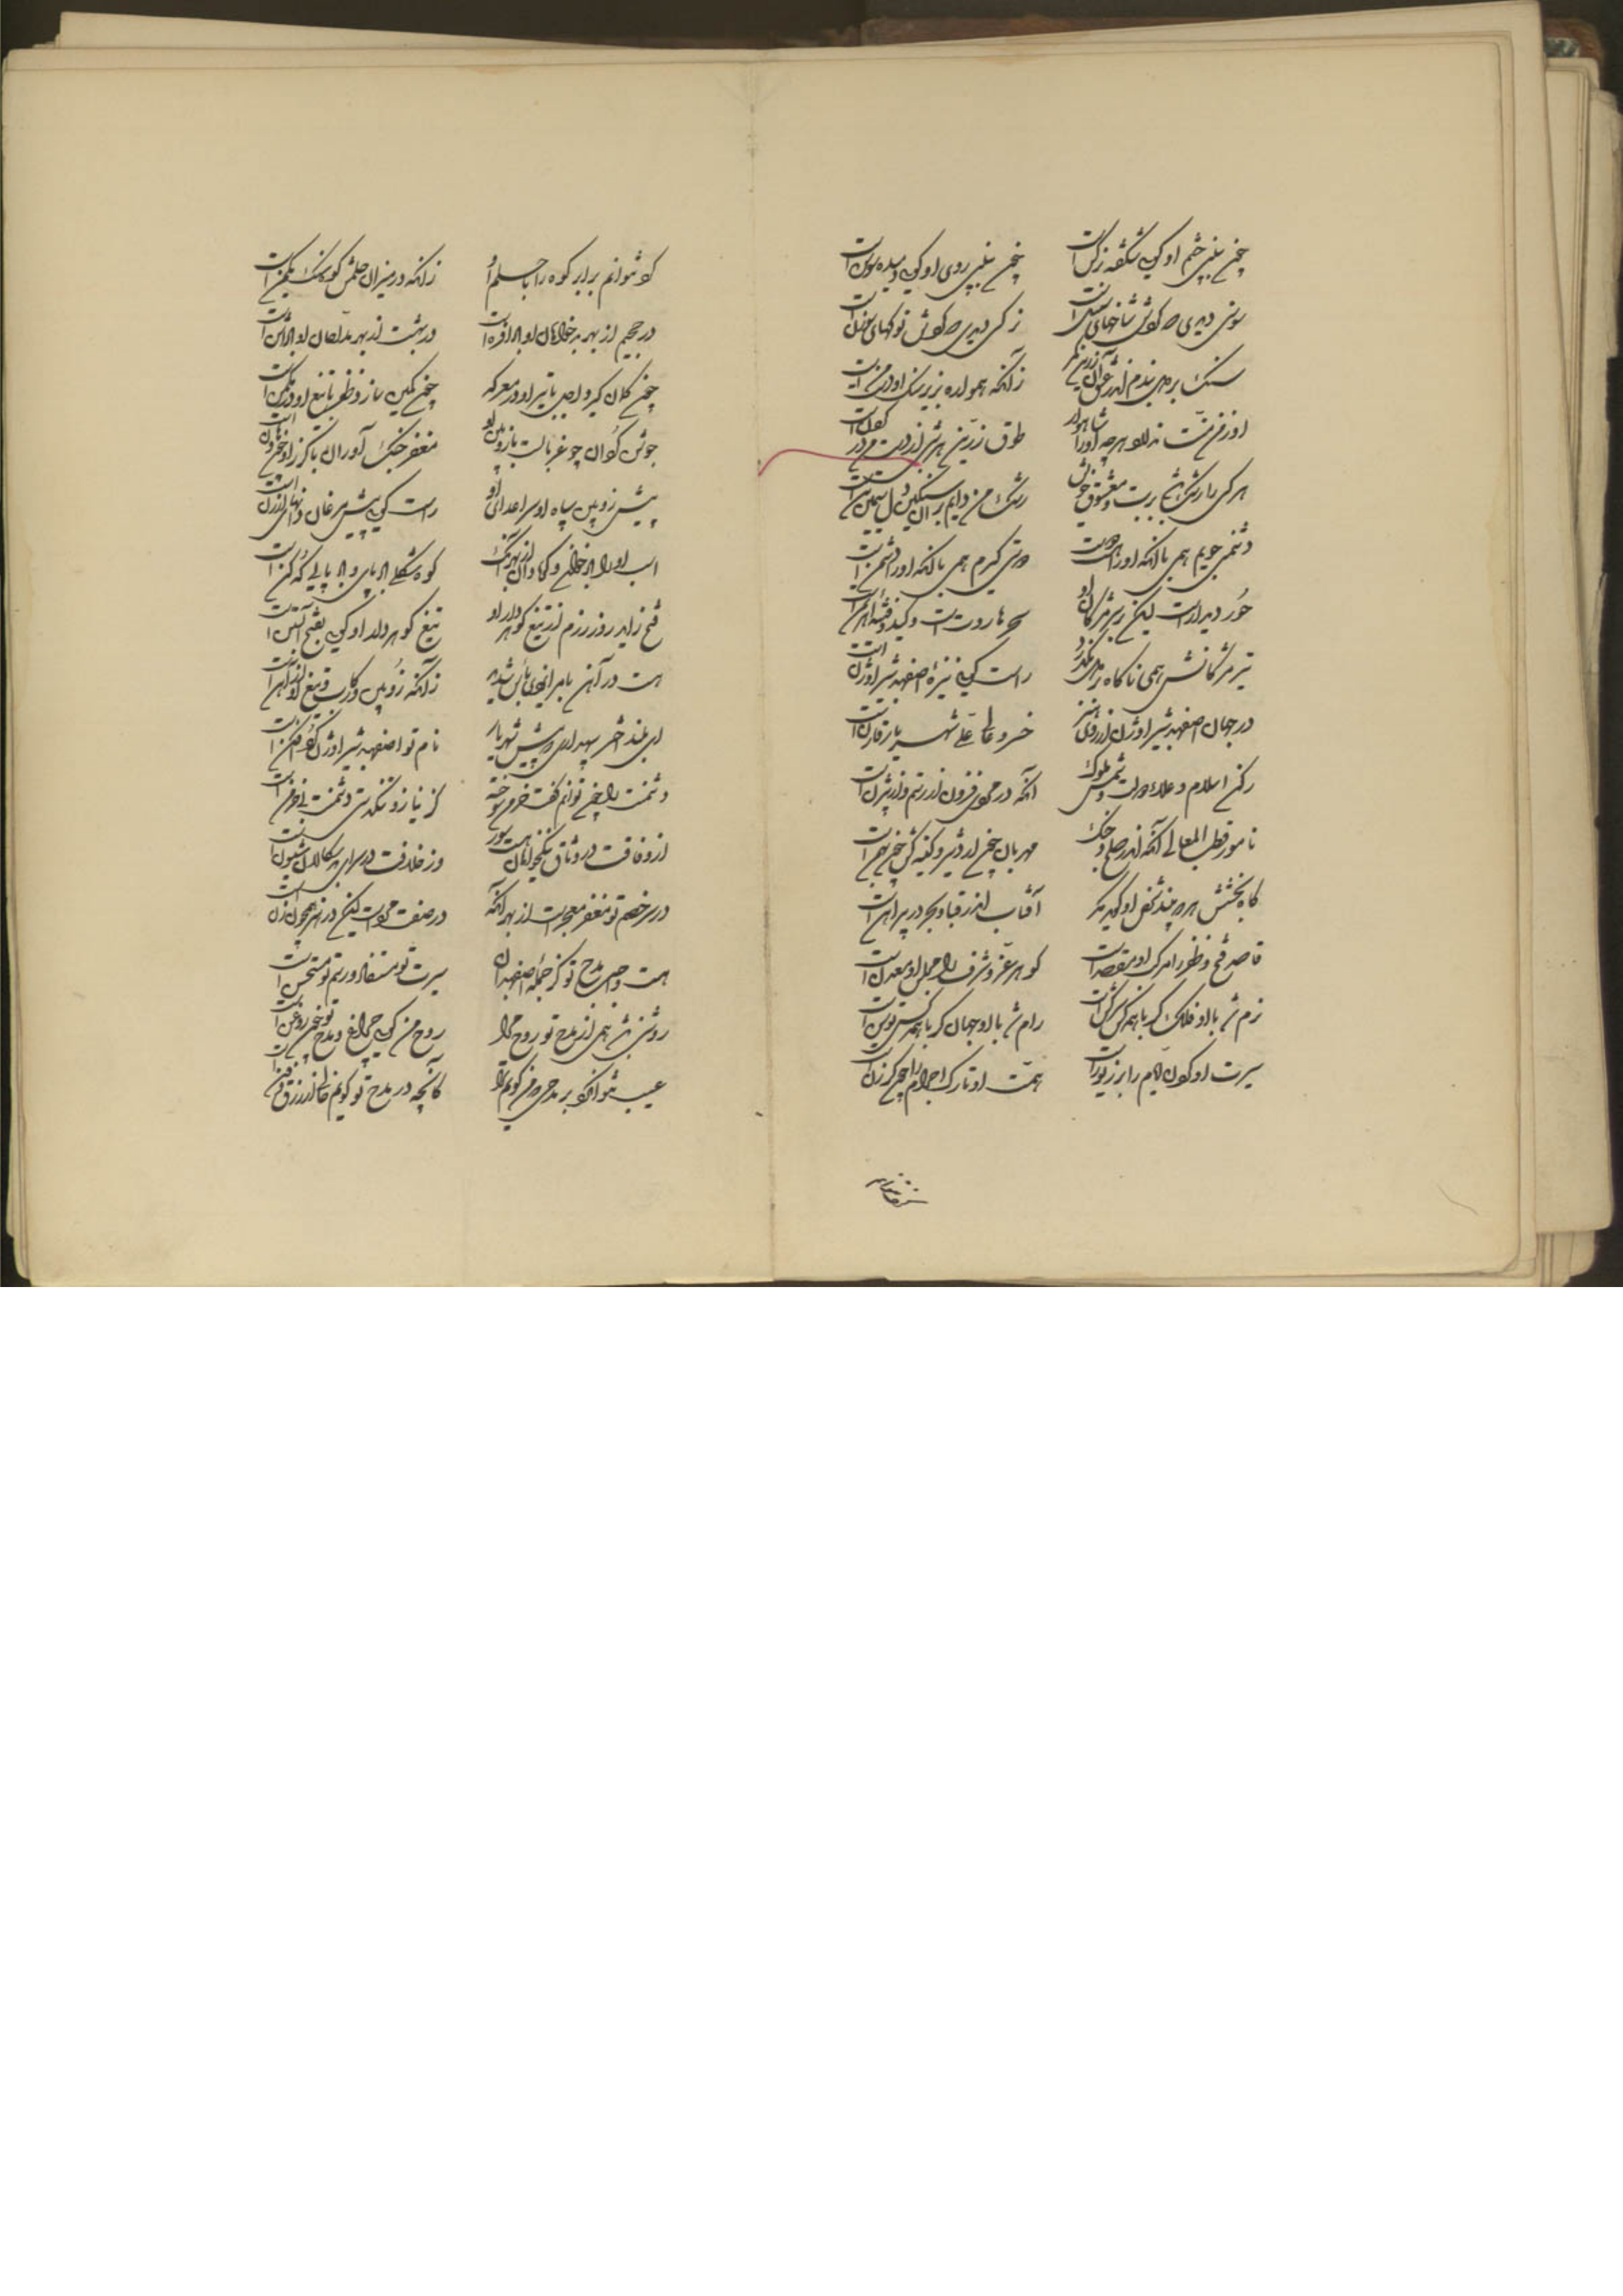 چون ببینی چشم او گویی شکفته نرگس است
چون ببینی روی او گویی دمیده سوسن است
سوسنی دیدی که گوشش شاخهای سنبل است
نرگسی دیدی که گوشش نوکهای سوزن است
سنگ بر دل بندم اندر عشق آن زرین کمر
زانکه همواره بزیر سنگ او درمن است
طوق زرین هر شبی از دست من در گردن است
هر کسی را رشک باشد بر بت و معشوق خویش
رشک من دایم بر آن سنگین دل سیمین تن است
دشمنی جویم همی با آنکه او را دوست است
دوستی گیرم همی با آنکه او را دشمن است
حور دیدار است لیکن زیر مژگان او
سحر هاروت است و کید و فتنه اهریمن است
تیر مژگانش همی ناگاه بر دل بگذرد
راست گویی نیزه اصفهبد شیر اوژن است
در جهان اصفهبد شیر اوژن از روی هنر
خسرو عالی علی شهریار قارن است
رکن اسلام و علاء دولت و شمس ملوک
آنکه در مردی فزون از رستم و از بیژن است
نامور قطب المعالی آنکه اندر صلح و جنگ
مهربان چون اردشیر و کینه کش چون بهمن است
گاه بخشش هر چه بیند شخص او گوید مگر
آفتاب اندر قبا و بحر در پیراهن است
قاصد فتح و ظفر را مرکب او مقصد است
گوهر عز و شرف را مجلس او معدن است
نرم شد با او فلک گر با همه کس سرکش است
رام شد با او جهان گر با همه کس توسن است
سیرت او گردن ایام را بر زیور است
همت او تارک اجرام را چون گرزن است
کی توانم برابر کوه را با حلم او
زانکه در میزان حلمش کوه سنگ یک من است
در جحیم از بهر بدخواهان او بادافره است
در بهشت از بهر مداحان او پاداشن است
چون کمان گیرد اجل با تیر او در معرکه
چون کمین سازد ظفر با تیغ او در مکمن است
جوشن گردان چو غربال است با زوبین او
مغفر جنگ آوران با گرز او چون هاون است
پیش زوبین سپاه او سر اعدای او
راست گویی پیش مرغان دانهای ارزن است
اسب او را باد خوانی و گاو آن از بهر آنک
کوه شکلی باد پای و باد پایی که کن است
فتح زاید روز رزم اندر تیغ گوهردار او
تیغ گوهردار او گویی بفتح آبستن است
هست در آهن بامر ایزدی باس شدید
زانکه زوبین و رکاب و تیغ او از آهن است
ای بلند اختر سپهداری که پیش شهریار
نام تو اصفهبد شیر اوژن گردافکن است
دشمنت را چون توانم گفت خرمن سوخته
کز نیاز و تنگدستی دشمنت بی خرمن است
از وفاقت در وثاق نیکخواهان هست سور
وز خلافت در سرای بدسگالان شیون است
در سر خصم تو مغفر معجر است از بهر آنکه
در صفت مرد است لیکن در هنر همچون زن است
هست واجب مدح تو کز جمله اصفهبدان
سیرت تو مستفاد و رسم تو مستحسن است
روشنی باشد همی از مدح تو روح مرا
روح من گویی چراغ و مدح تو چون روغن است
کانچه در مدح تو گویم